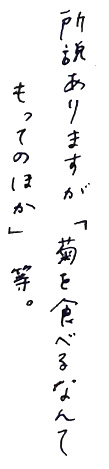 所説ありますが「菊を食べるなんて
もってのほか」等。